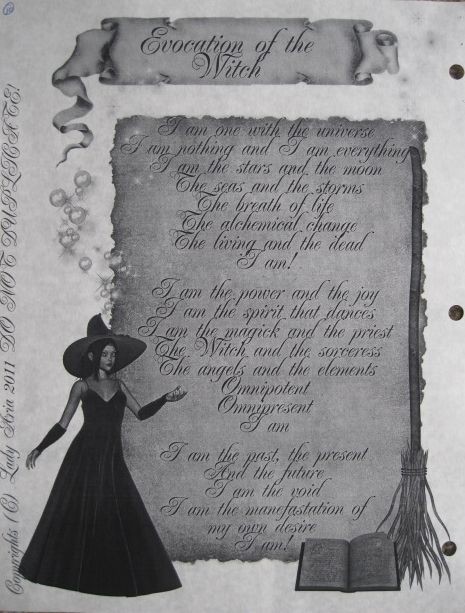 Evocation of the
Witch
I am one with the universe
I am nothing and I am everything
I am the stars and the moon
The seas and the storms
The breath of life
The alchemical change
The living and the dead
I am!
I am the power and the joy
I am the spirit that dances
I am the magick and the priest
The Witch and the sorceress
The angels and the elements
Omnipotent
Omnypresent
I am
I am the past, the present
And the future
I am the void
I am the manefastation of
my own desire
I am!
Copyrights (C) Lady Aria 2011 DO NOT DUPLICATE!